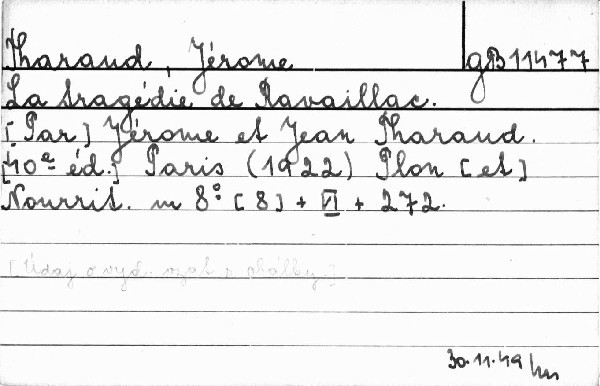 Tharaud, Jérome gB11477
La tragédie de Ravaillac.
[Par] Jérome et Jean Tharaud.
[40e éd.] Paris (1922) Plon [et]
Nourrit. m 8° [8] + VI + 272.
[Údaj o vyd. vzat z obálky.]
30.11.49